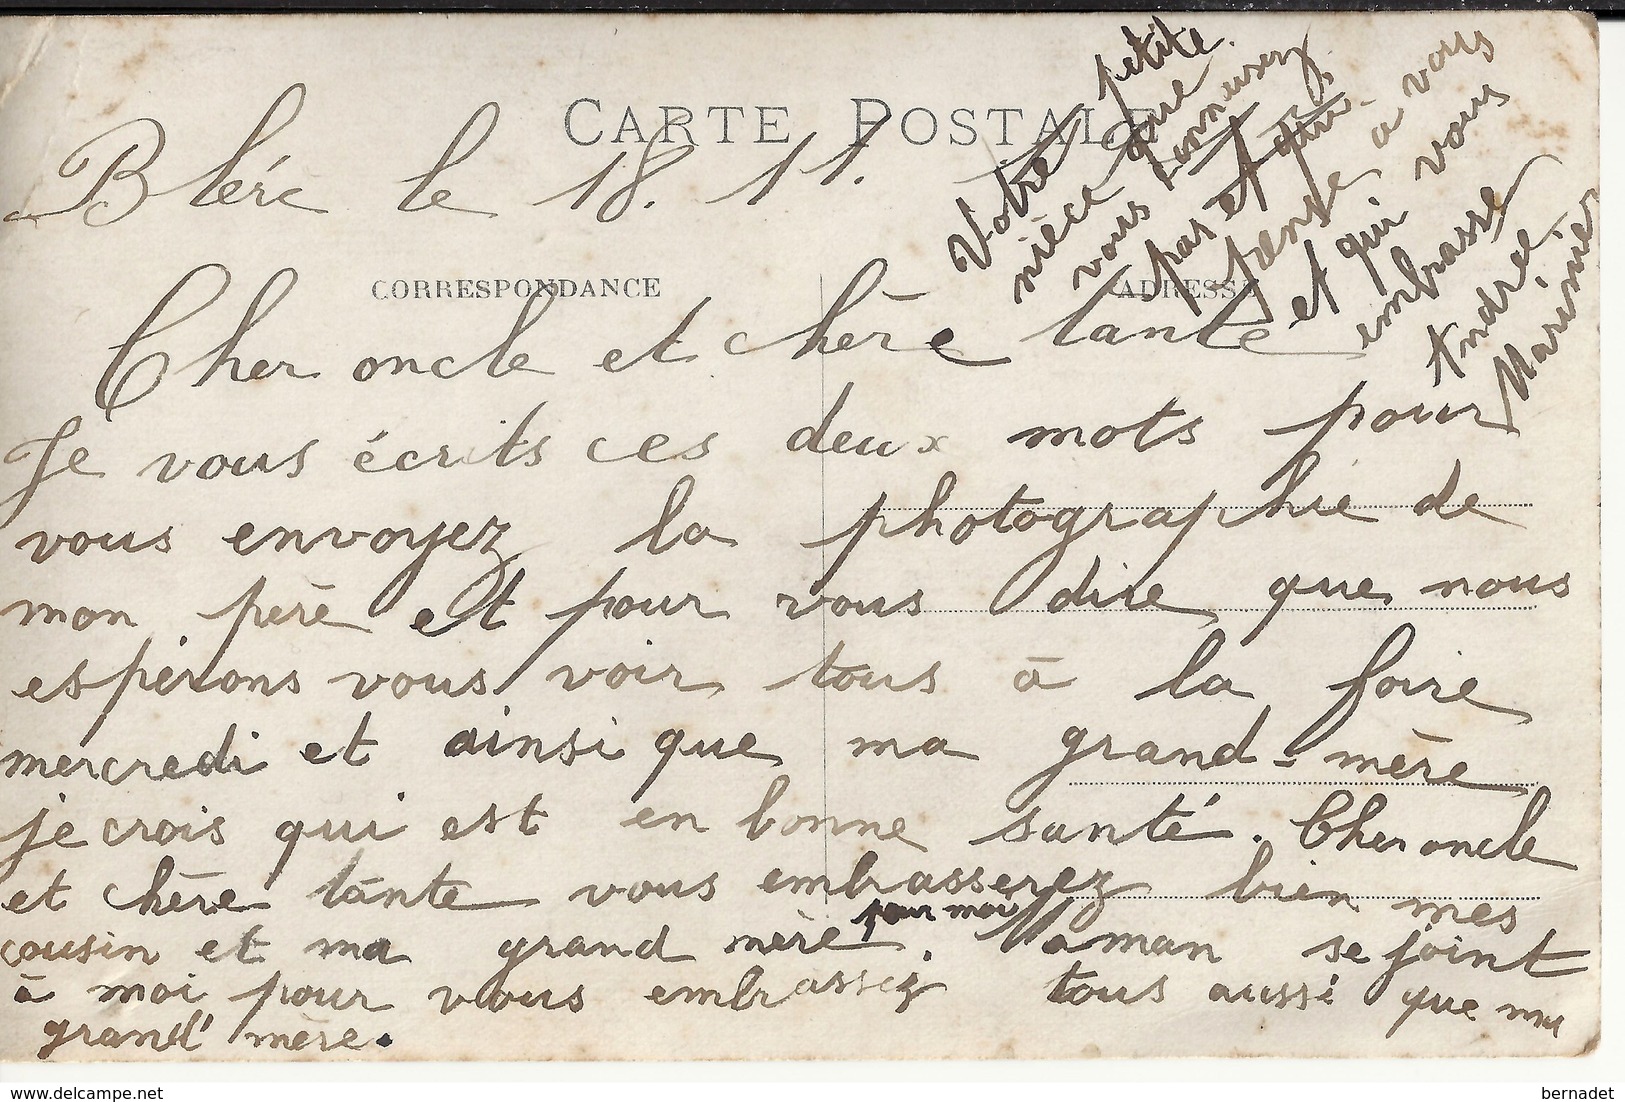 CARTE POSTALE
Bléré le 18. 11.
CORRESPONDANCE
ADRESSE
Cher oncle et chère tante
Je vous écrits ces deux mots pour
vous envoyez la photographie de
mon père et pour vous dire que nous
espérons vous voir tous à la foire
mercredi et ainsi que ma grand-mère
je crois qui est en bonne santé. Cher oncle
et chère tante vous embrasserez bien mes
cousin et ma grand mère pour moi. Maman se joint
à moi pour vous embrassez tous aussi que ma
grand' mère.
Votre petite
nièce que
vous
pas et qui
pense à vous
et qui vous
embrasse
Andrée
Marinier
bernadet